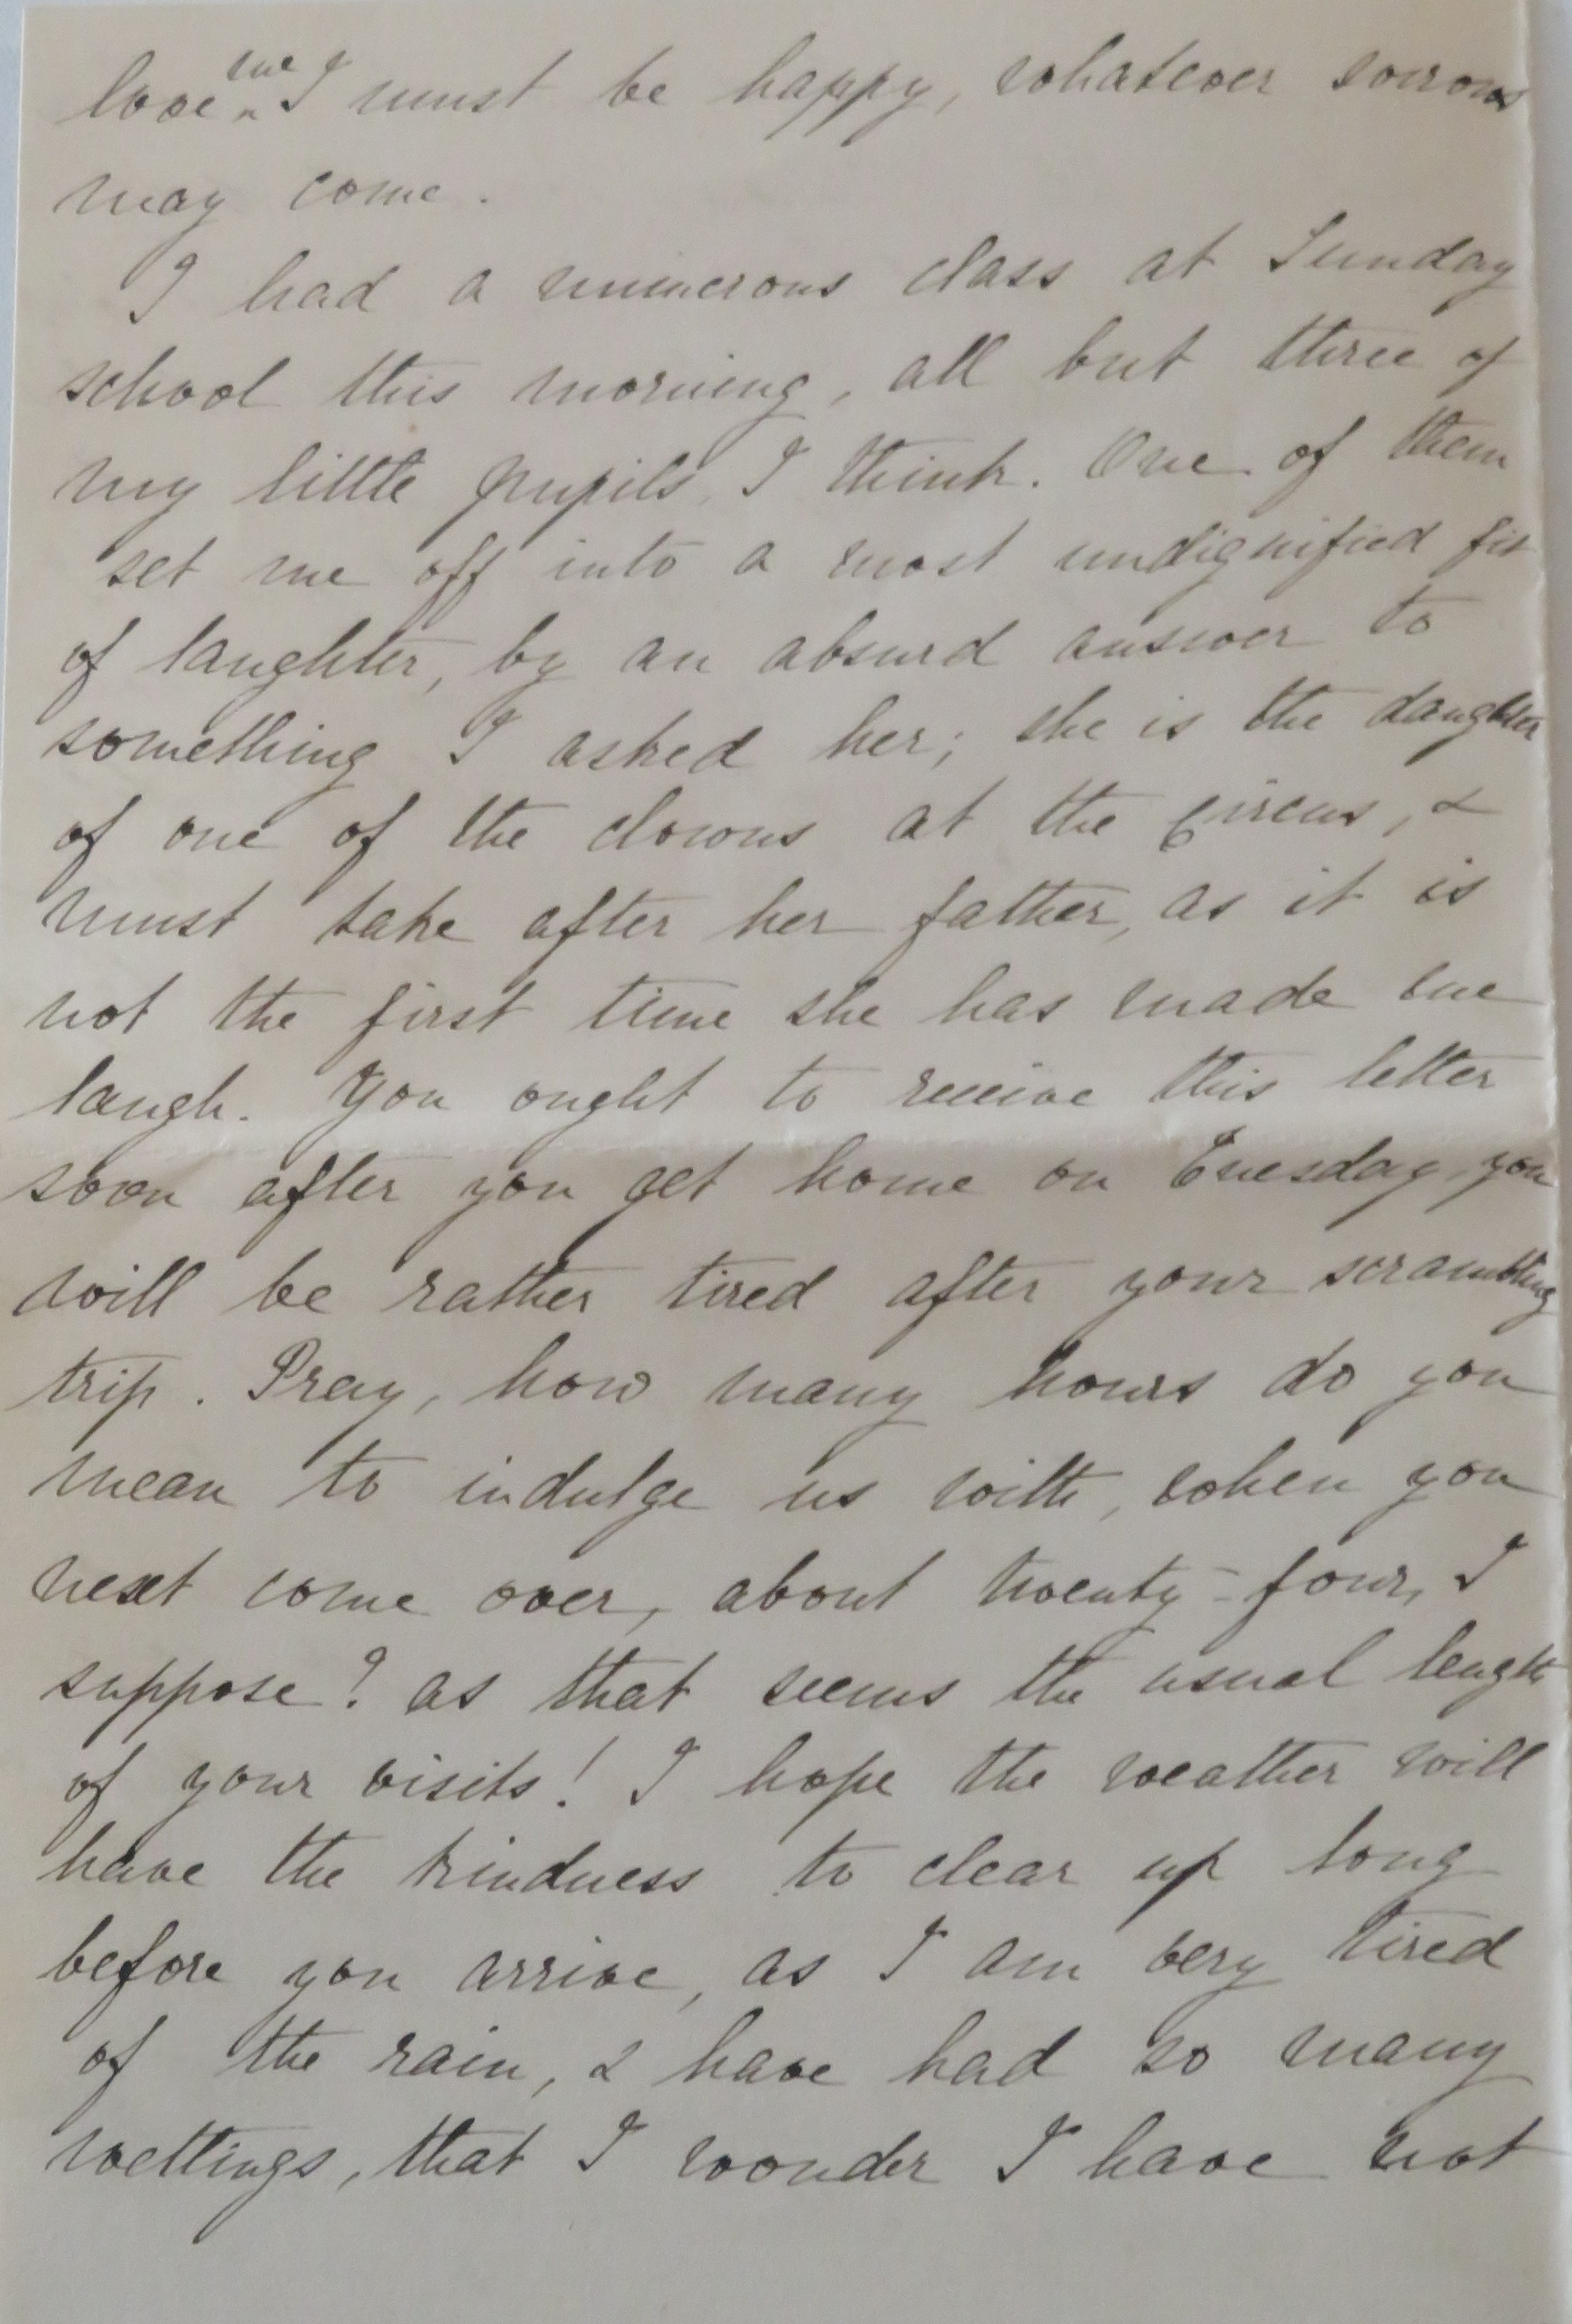 love ^me I must be happy, whatever sorrows
may come.
I had a numerous class at Sunday
school this morning, all but three of
my little pupils, I think. One of them
set me off into a most undignified fit
of laughter, by an absurd answer to
something I asked her; she is the daughter
of one of the clowns at the circus, &
must take after her father, as it is
not the first time she has made me
laugh. You ought to receive this letter
soon after you get home on Tuesday, you
will be rather tired after your scrambling
trip. Pray, how many hours do you
mean to indulge us with, when you
next come over, about twenty-four, I
suppose? as that seems the usual length
of your visits! I hope the weather will
have the kindness to clear up long
before you arrive, as I am very tired
of the rain, & have had so many
wettings, that I wonder I have not